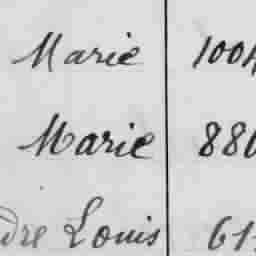 Marie 1004
Marie 880
dre Louis 61